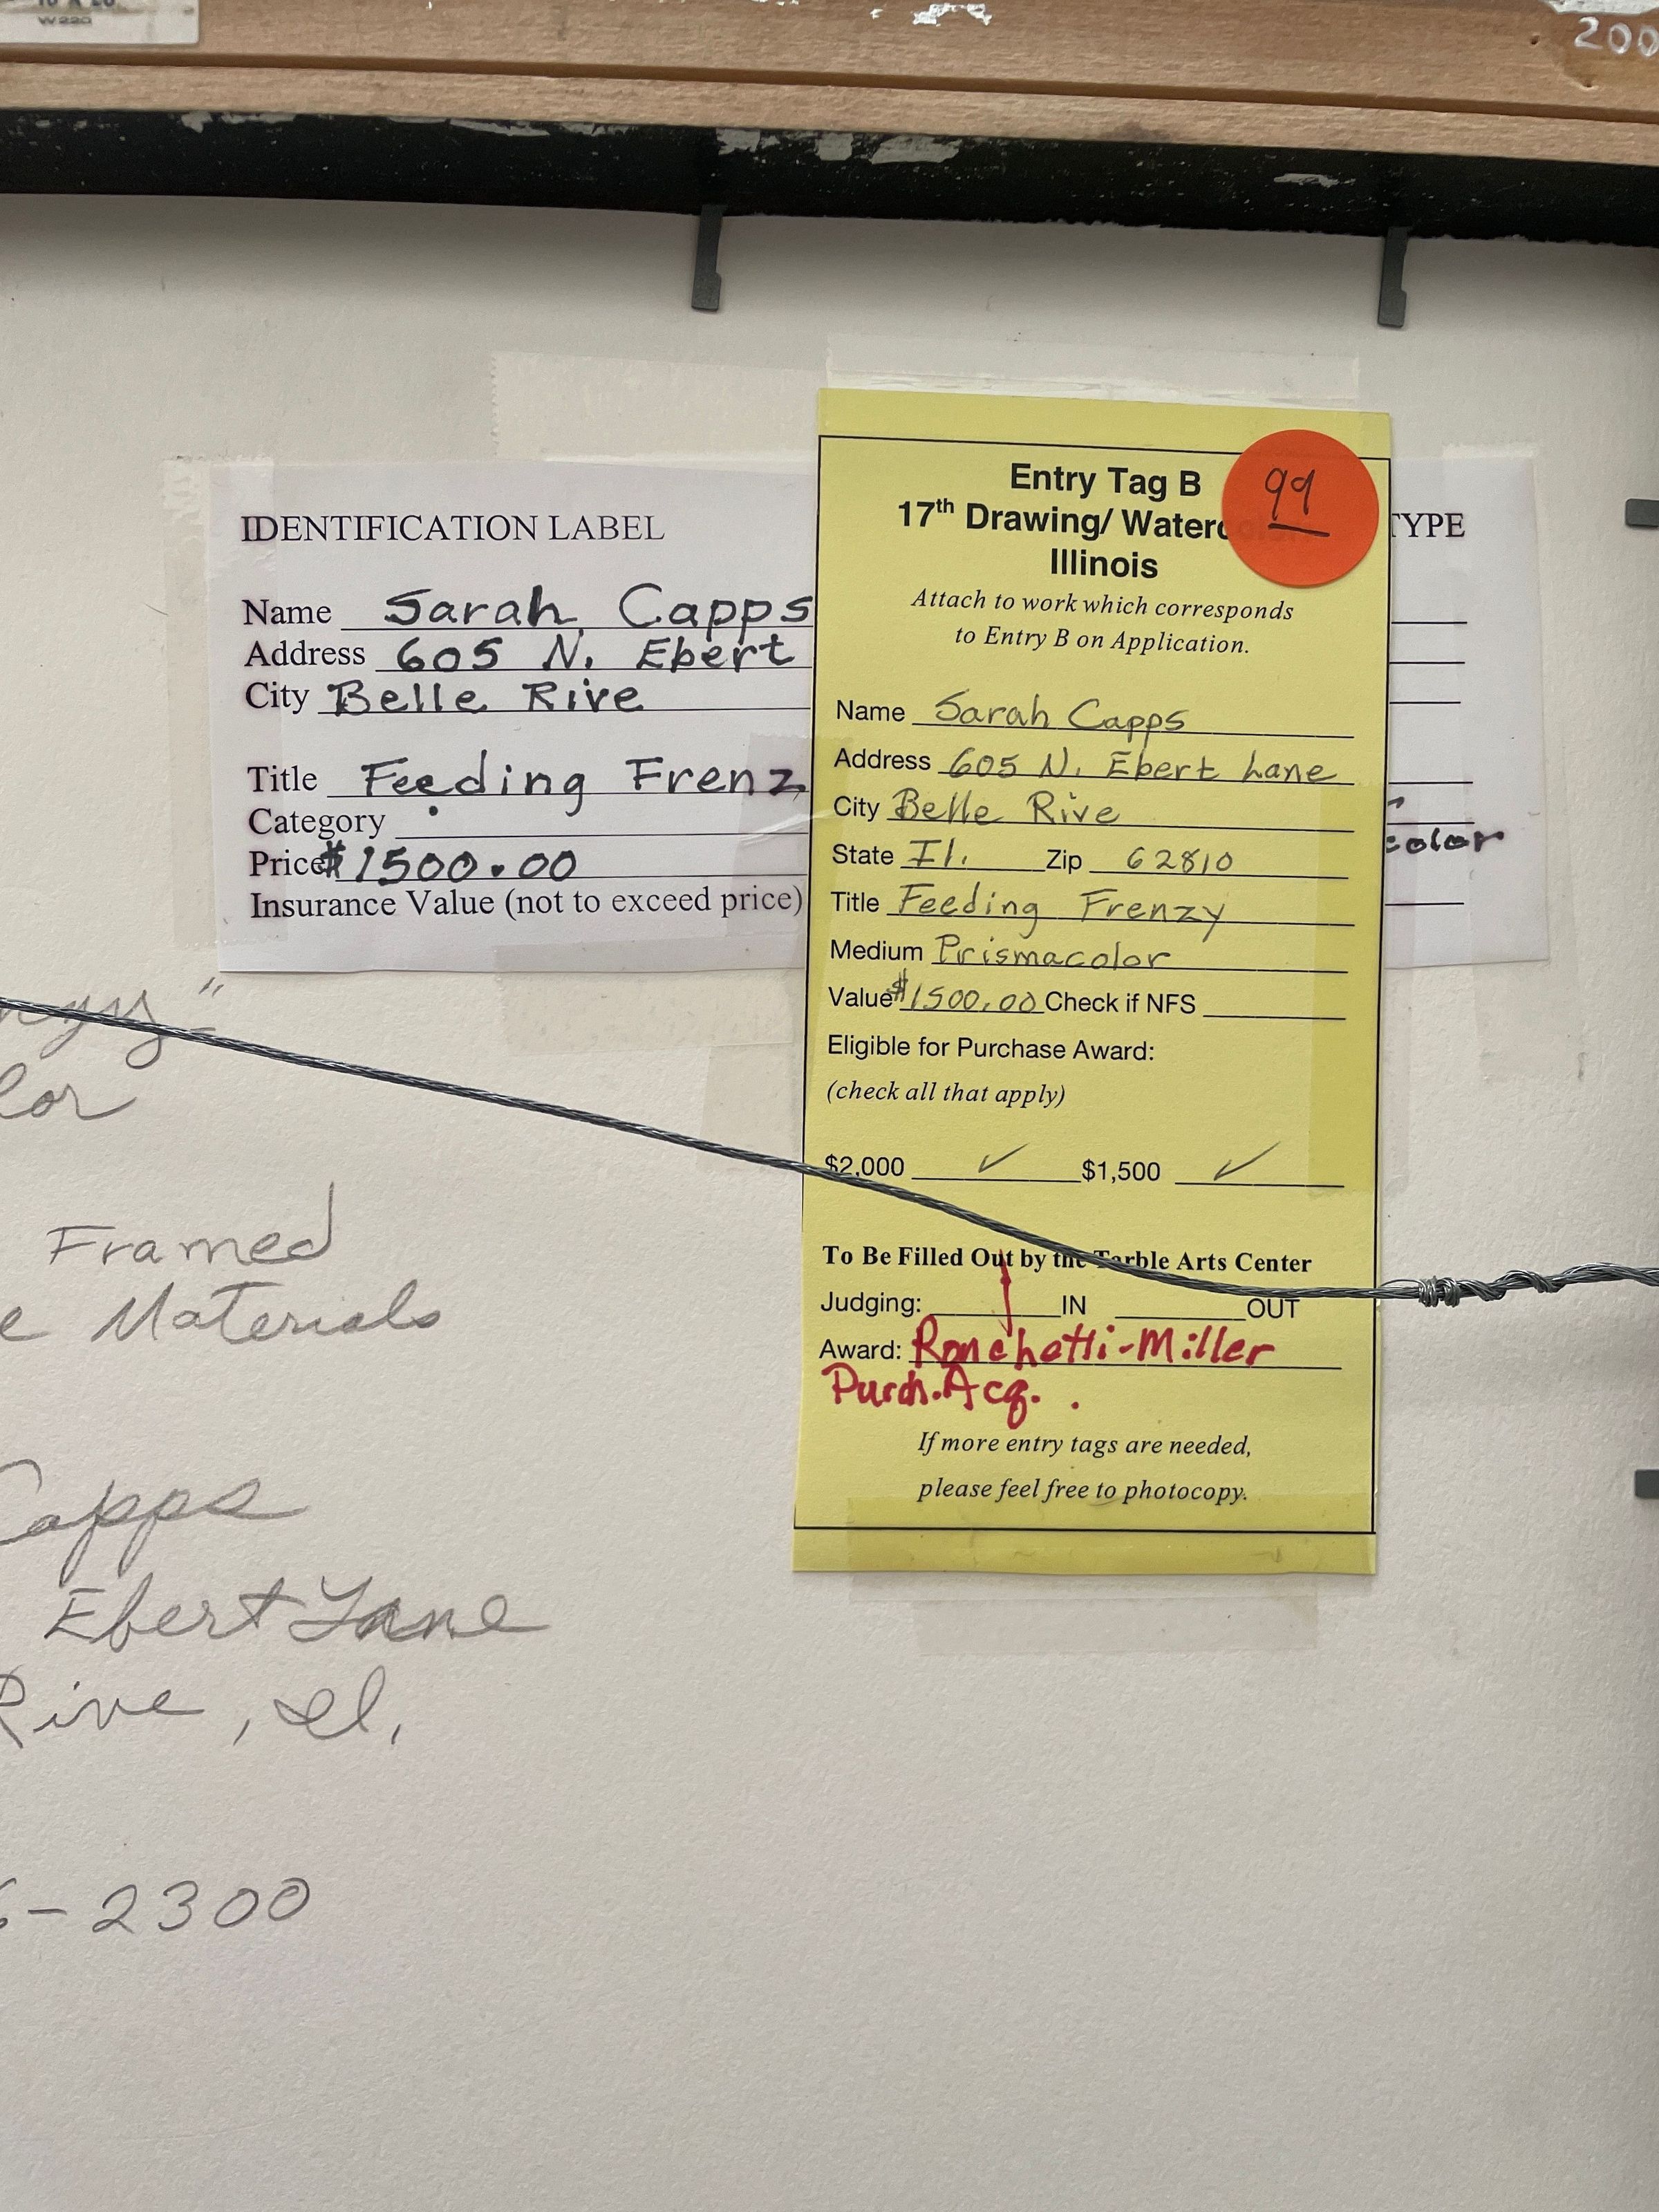 W220
200
IDENTIFICATION LABEL
TYPE
Name Sarah Capps
Address 605 N. Ebert
City Belle Rive
Title Feeding Frenz
Category
color
Price $1500.00
Insurance Value (not to exceed price)
Entry Tag B
99
17th Drawing/ Waterc
Illinois
Attach to work which corresponds
to Entry B on Application.
Name Sarah Capps
Address 605 N. Ebert Lane
City Belle Rive
State Il. Zip 62810
Title Feeding Frenzy
Medium Prismacolor
Value $1500.00 Check if NFS
Eligible for Purchase Award:
(check all that apply)
$2,000 ✓ $1,500 ✓
To Be Filled Out by the Tarble Arts Center
Judging: IN OUT
Award: Ronchetti-Miller
Purch. Acq.
If more entry tags are needed,
please feel free to photocopy.
nzy"
lor
Framed
e Materials
Capps
Ebert Lane
Rive, Il.
-2300